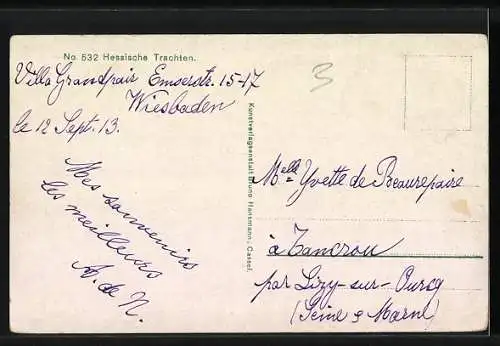 No. 532 Hessische Trachten.
Villa Grandpair Emserstr. 15-17
Wiesbaden
le 12 Sept. 13.
3
Mes souvenirs
les meilleurs
A. de N.
Kunstverlagsanstalt Bruno Hansmann, Cassel.
Melle Yvette de Beaurepaire
à Tancrou
par Lizy-sur-Ourcq
(Seine & Marne)